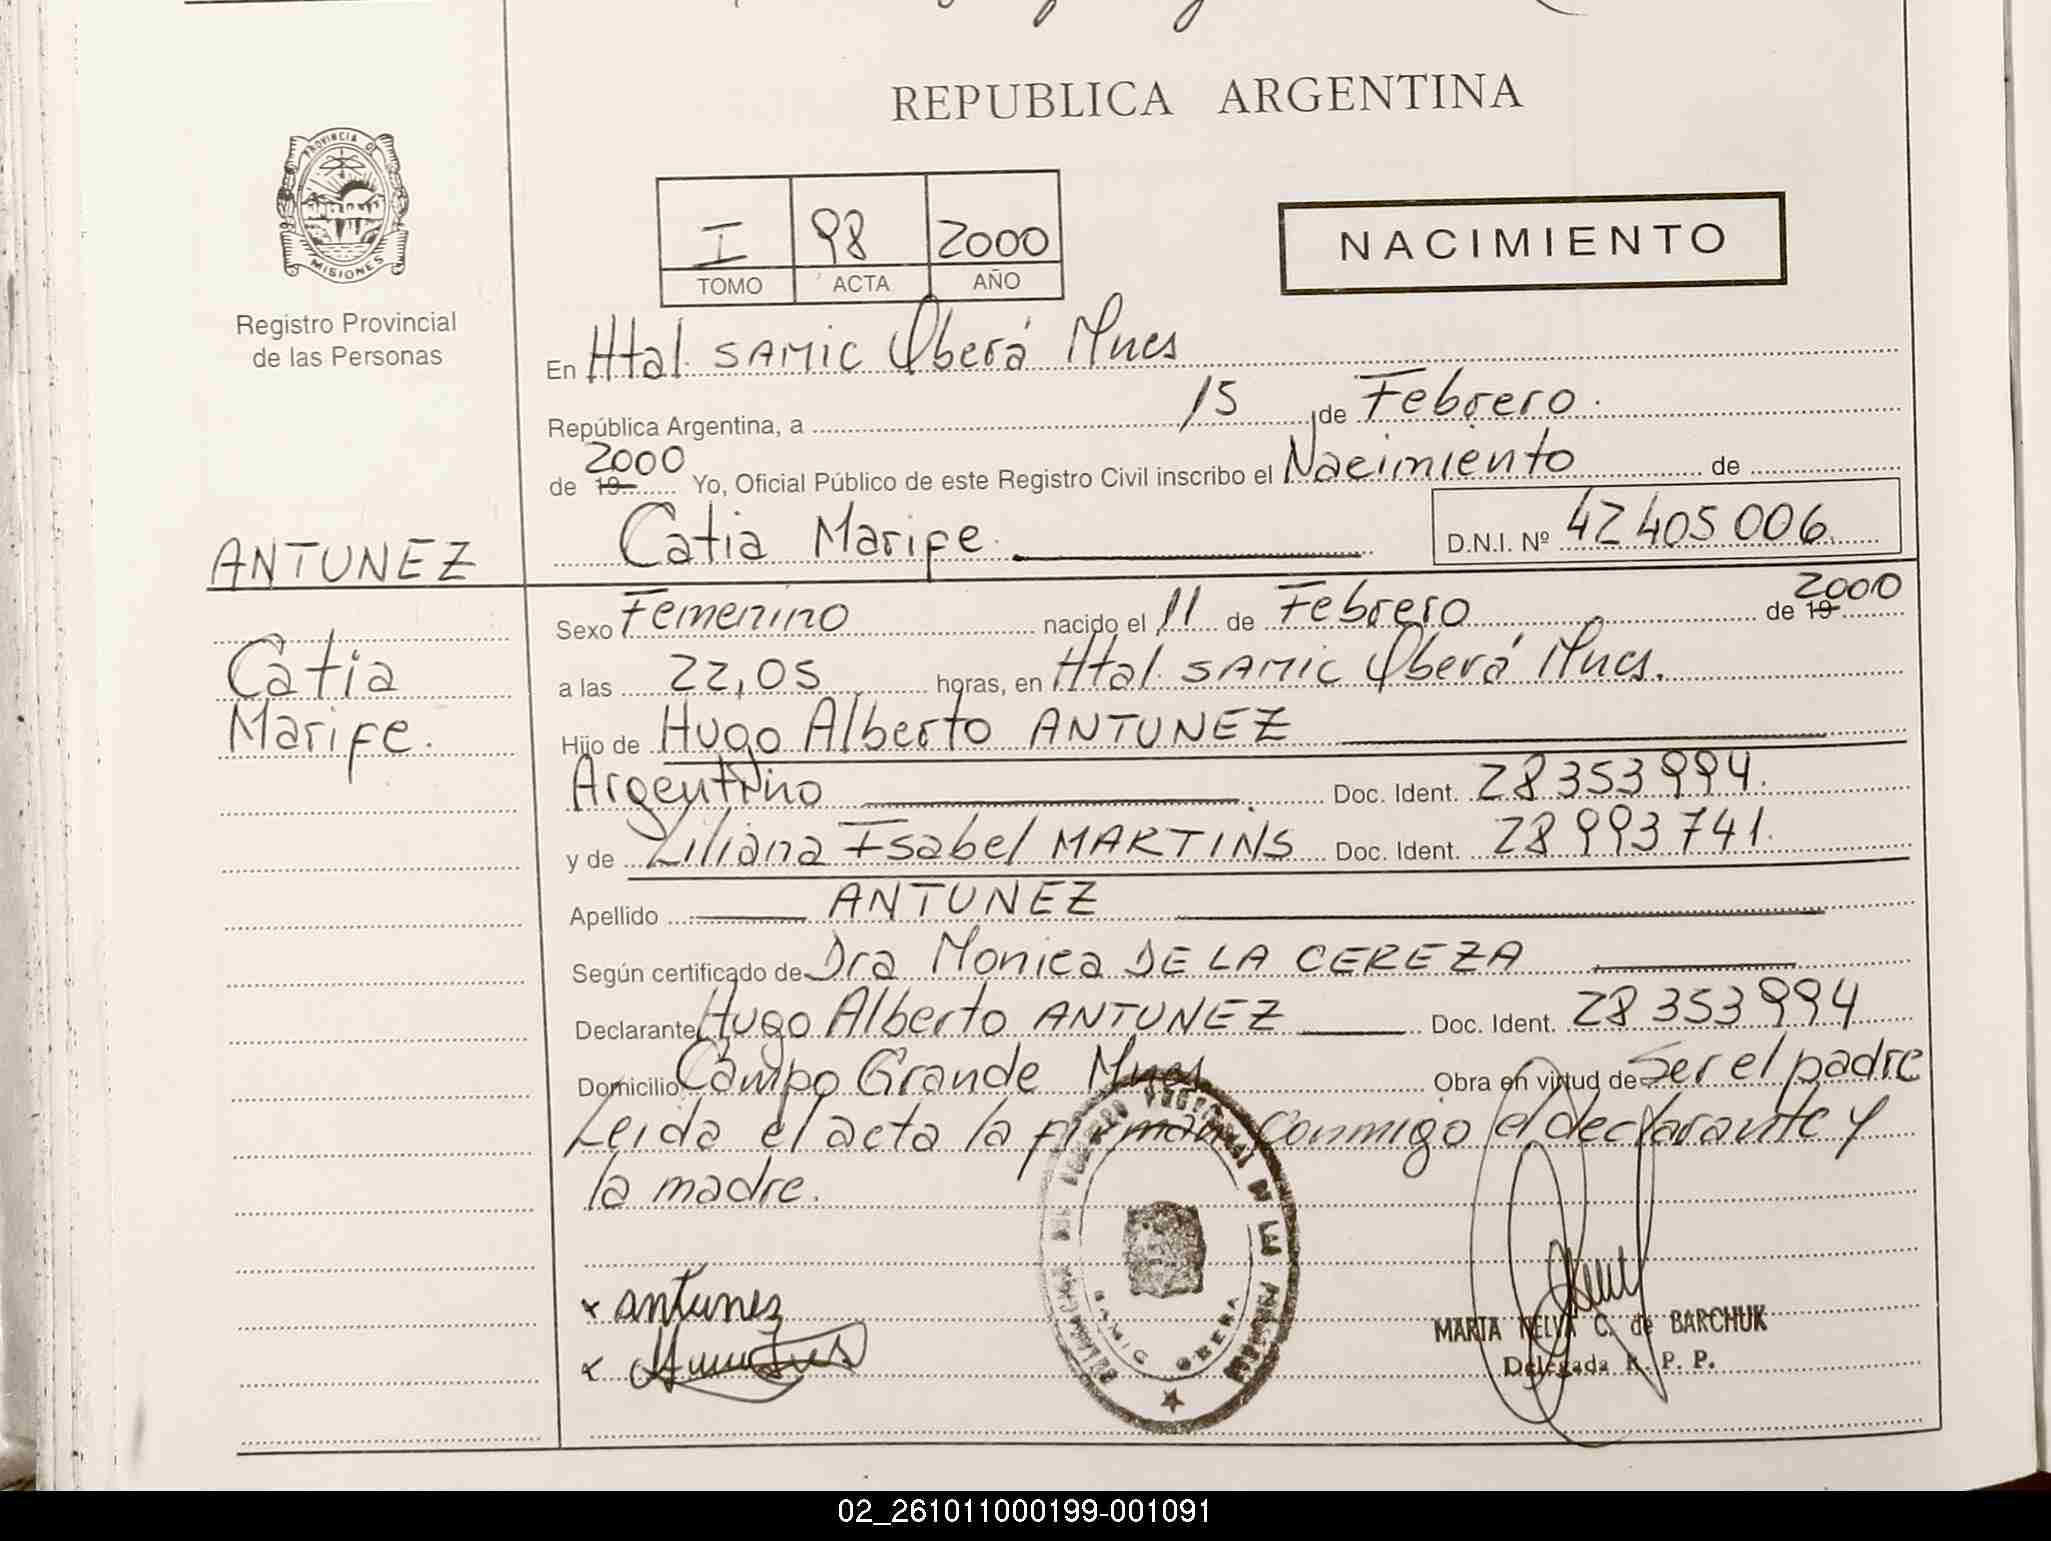 REPUBLICA ARGENTINA
PROVINCIA D
MISIONES
Registro Provincial
de las Personas
I 98 2000
TOMO ACTA AÑO
NACIMIENTO
En Htal. SAMIC Oberá Mnes
República Argentina, a 15 de Febrero.
de 19 2000 Yo, Oficial Público de este Registro Civil inscribo el Nacimiento de
Catia Marife. D.N.I. Nº 42 405 006.
ANTUNEZ
Catia
Marife.
Sexo Femenino nacido el 11 de Febrero de 19 2000
a las 22,05 horas, en Htal. SAMIC Oberá Mnes.
Hijo de Hugo Alberto ANTUNEZ
Argentino Doc. Ident. 28 353 994.
y de Liliana Isabel MARTINS Doc. Ident. 28 993 741.
Apellido ANTUNEZ
Según certificado de Dra Monica DE LA CEREZA
Declarante Hugo Alberto ANTUNEZ Doc. Ident. 28 353 994
Domicilio Campo Grande Mnes Obra en virtud de Ser el padre
Leida el acta la firman conmigo el declarante y
la madre.
x antunez
x
SAMIC OBERA
MARTA NELVA C. de BARCHUK
Delegada R. P. P.
02_261011000199-001091